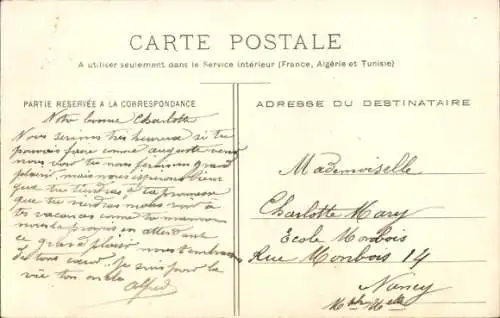 CARTE POSTALE
A utiliser seulement dans le Service intérieur (France, Algérie et Tunisie)
PARTIE RESERVÉE A LA CORRESPONDANCE
Notre bonne Charlotte
Nous serions très heureux si tu
pouvais faire comme auguste venir
nous voir tu nous ferais un grand
plaisir, mais nous espérons bien
que tu tiendras à ta promesse
que tu viendras nous voir à
tes vacances comme ta maman
nous l'a promis en attendant
ce grand plaisir nous t'embrassons
de tout cœur. Je suis pour la
vie ton oncle
Alfred
ADRESSE DU DESTINATAIRE
Mademoiselle
Charlotte Mary
École Monbois
Rue Monbois 14
Nancy
Mthe Mlle